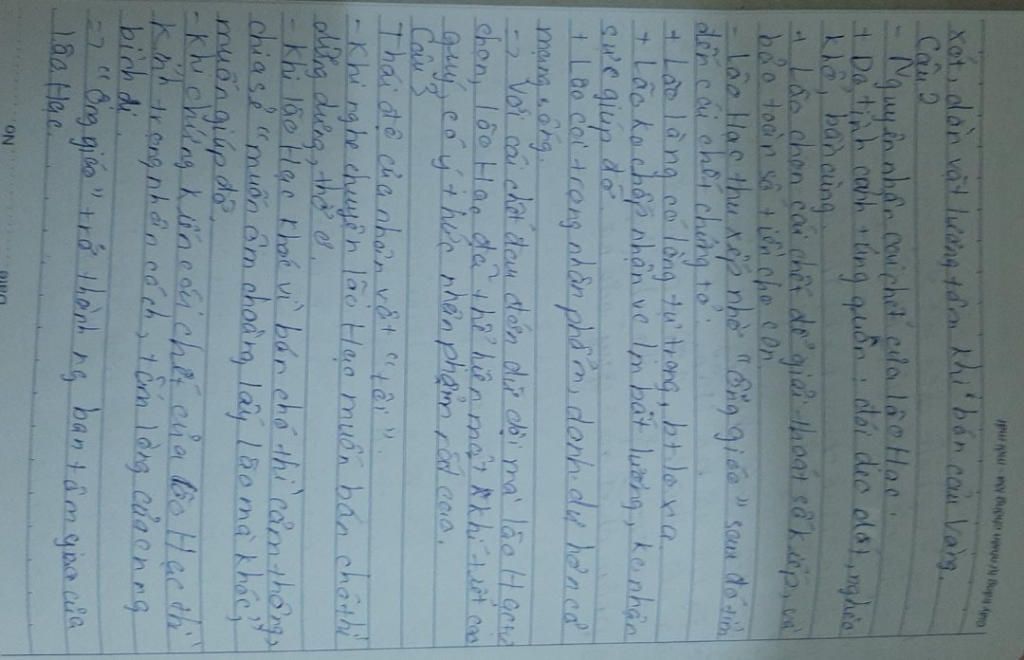 xót, dằn vặt lương tâm khi bán cậu Vàng.
Câu 2
- Nguyên nhân cái chết của lão Hạc:
+ Do tình cảnh túng quẫn, đói deo dắt, nghèo
khổ, bần cùng.
+ Lão chọn cái chết để giải thoát số kiếp, và
bảo toàn số tiền cho con.
- Lão Hạc thu xếp nhờ "ông giáo" sau đó tìm
đến cái chết chứng tỏ:
+ Lão là ng có lòng tự trọng, bt lo xa
+ Lão ko chấp nhận việc lm bất lương, ko nhận
sự giúp đỡ
+ Lão coi trọng nhân phẩm, danh dự hơn cả
mạng sống.
-> Với cái chết đau đớn dữ dội mà lão Hạc tự
chọn, lão Hạc đã thể hiện một khí tiết cao
quý, có ý thức nhân phẩm rất cao.
Câu 3
Thái độ của nhân vật "tôi".
- Khi nghe chuyện lão Hạc muốn bán chó thì
dửng dưng, thờ ơ.
- Khi lão Hạc khóc vì bán chó thì cảm thông,
chia sẻ "muốn ôm choàng lấy lão mà khóc",
muốn giúp đỡ.
- Khi chứng kiến cái chết của lão Hạc thì
kính trọng nhân cách, tấm lòng của con ng
bình dị.
=> "Ông giáo" trở thành ng bạn tâm giao của
lão Hạc.
No.
Date